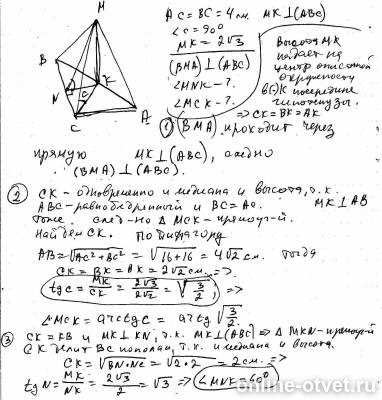 M
B
K
N
C
C
A
AC = BC = 4 см. MK⊥(ABC)
∠C = 90°
MK = 2√3
(BMA)⊥(ABC)
∠MNK - ?
∠MCK - ?
Высота MK
падает на
центр описанной
окружности
в (·) K посередине
гипотенузы.
=> CK = BK = AK
① (BMA) проходит через
прямую MK⊥(ABC), следно
(BMA)⊥(ABC).
② CK - одновременно и медиана и высота, т.к.
ABC - равнобедренный и BC = AC. MK⊥AB
Тоже. след-но Δ MCK - прямоуг-й.
Найдем CK. По пифагору
AB = √AC² + BC² = √16+16 = 4√2 см. тогда
CK = BK = AK = 2√2 см. =>
tg C = MK/CK = 2√3/2√2 = √3/2, =>
∠MCK = arctg C = arctg √3/2.
③ CK = KB и MK⊥KN, т.к. MK⊥(ABC) => Δ MKN - прямоуг-й
CK делит BC пополам, т.к. и медиана и высота.
CK = √BN·NC = √2·2 = 2 см. =>
tg N = MK/NK = 2√3/2 = √3 => ∠MNK = 60°
online-otvet.ru